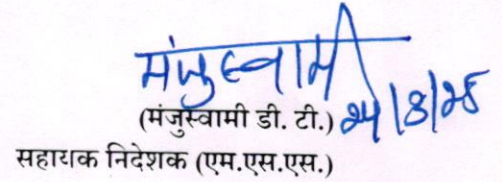 मंजुस्वामी
(मंजुस्वामी डी. टी.) २५/३/२५
सहायक निदेशक (एम.एस.एस.)